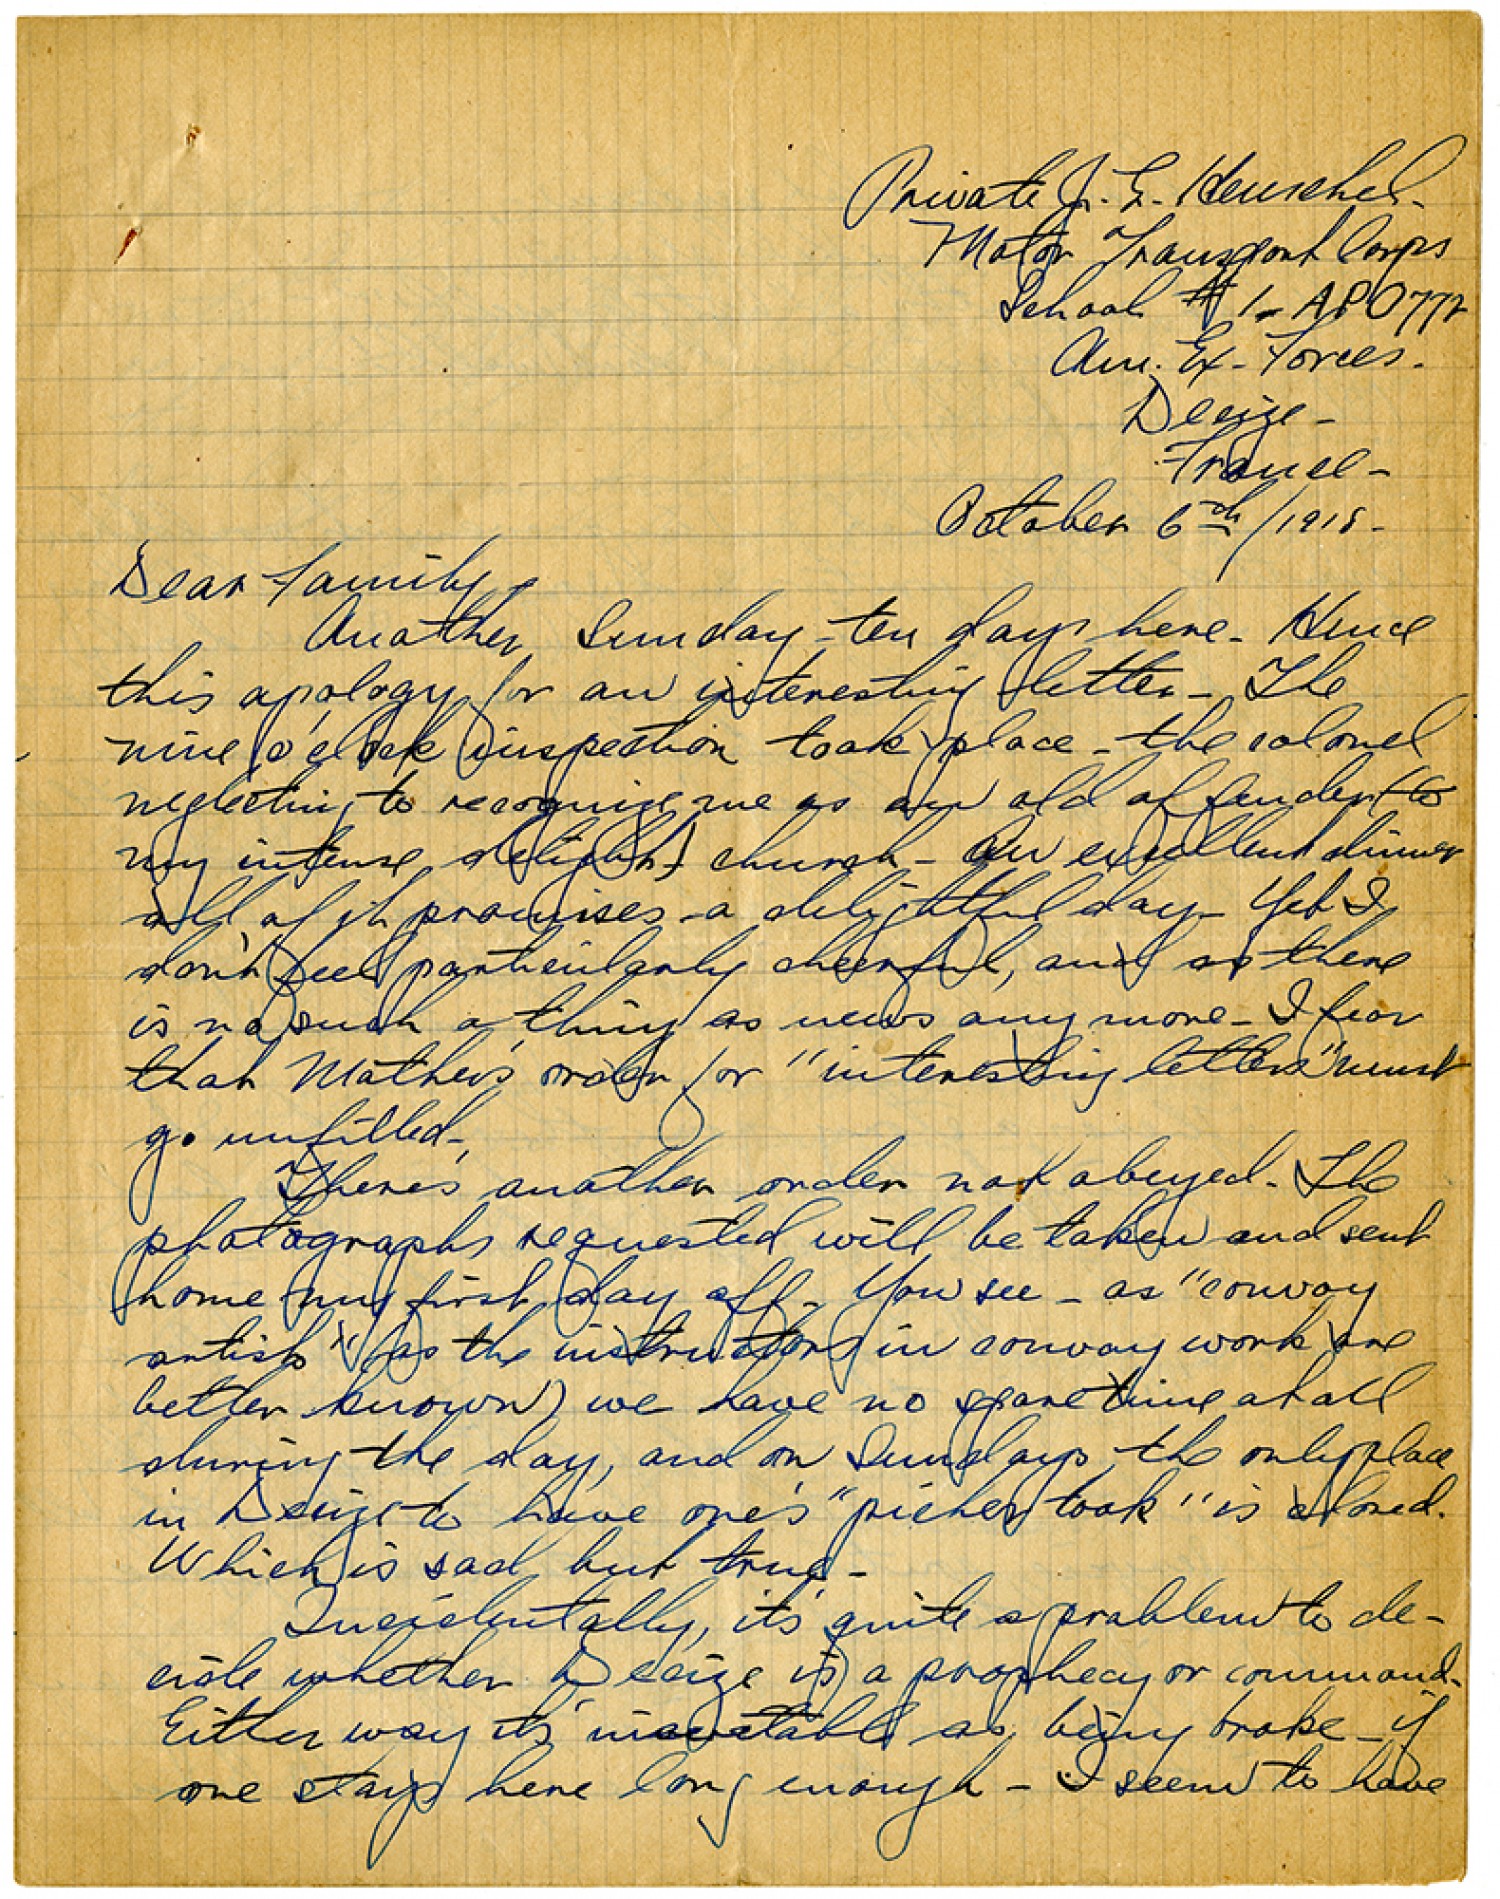 Private J. E. Henschel.
Motor Transport Corps
School #1 - APO 772
Am. Ex. Forces.
Decize -
France -
October 6th/1918.
Dear Family,
Another Sunday - ten days here - Hence
this apology for an interesting letter - The
nine o'clock inspection took place - the colonel
neglecting to recognize me as an old offender (to
my intense delight) church - an excellent dinner
all of it promises - a delightful day - Yet I
don't feel particularly cheerful, and as there
is no such a thing as news anymore - I fear
that Mother's order for "interesting letters" must
go unfilled -
There's another order not obeyed - The
photographs requested will be taken and sent
home my first day off - You see - as "convoy
artists" (as the instructors in convoy work are
better known) we have no spare time at all
during the day, and on Sundays the only place
in Decize to have one's "picher took" is closed.
Which is sad but true -
Incidentally, it's quite a problem to de-
cide whether Decize is a prophecy or command -
Either way it's inevitable as being broke - if
one stays here long enough - I seem to have